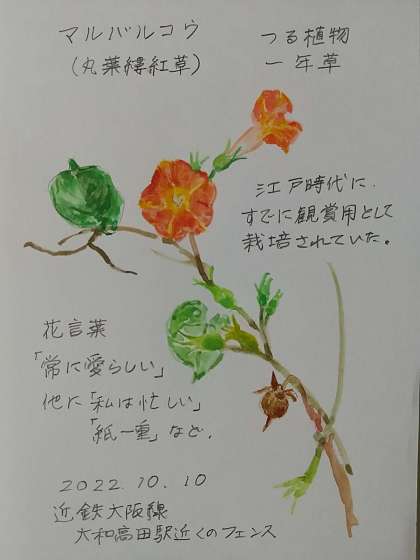 マルバルコウ
(丸葉縷紅草)
つる植物
一年草
江戸時代に、
すでに観賞用として
栽培されていた。
花言葉
「常に愛らしい」
他に「私は忙しい」
「紙一重」など.
2022.10.10
近鉄大阪線
大和高田駅近くのフェンス